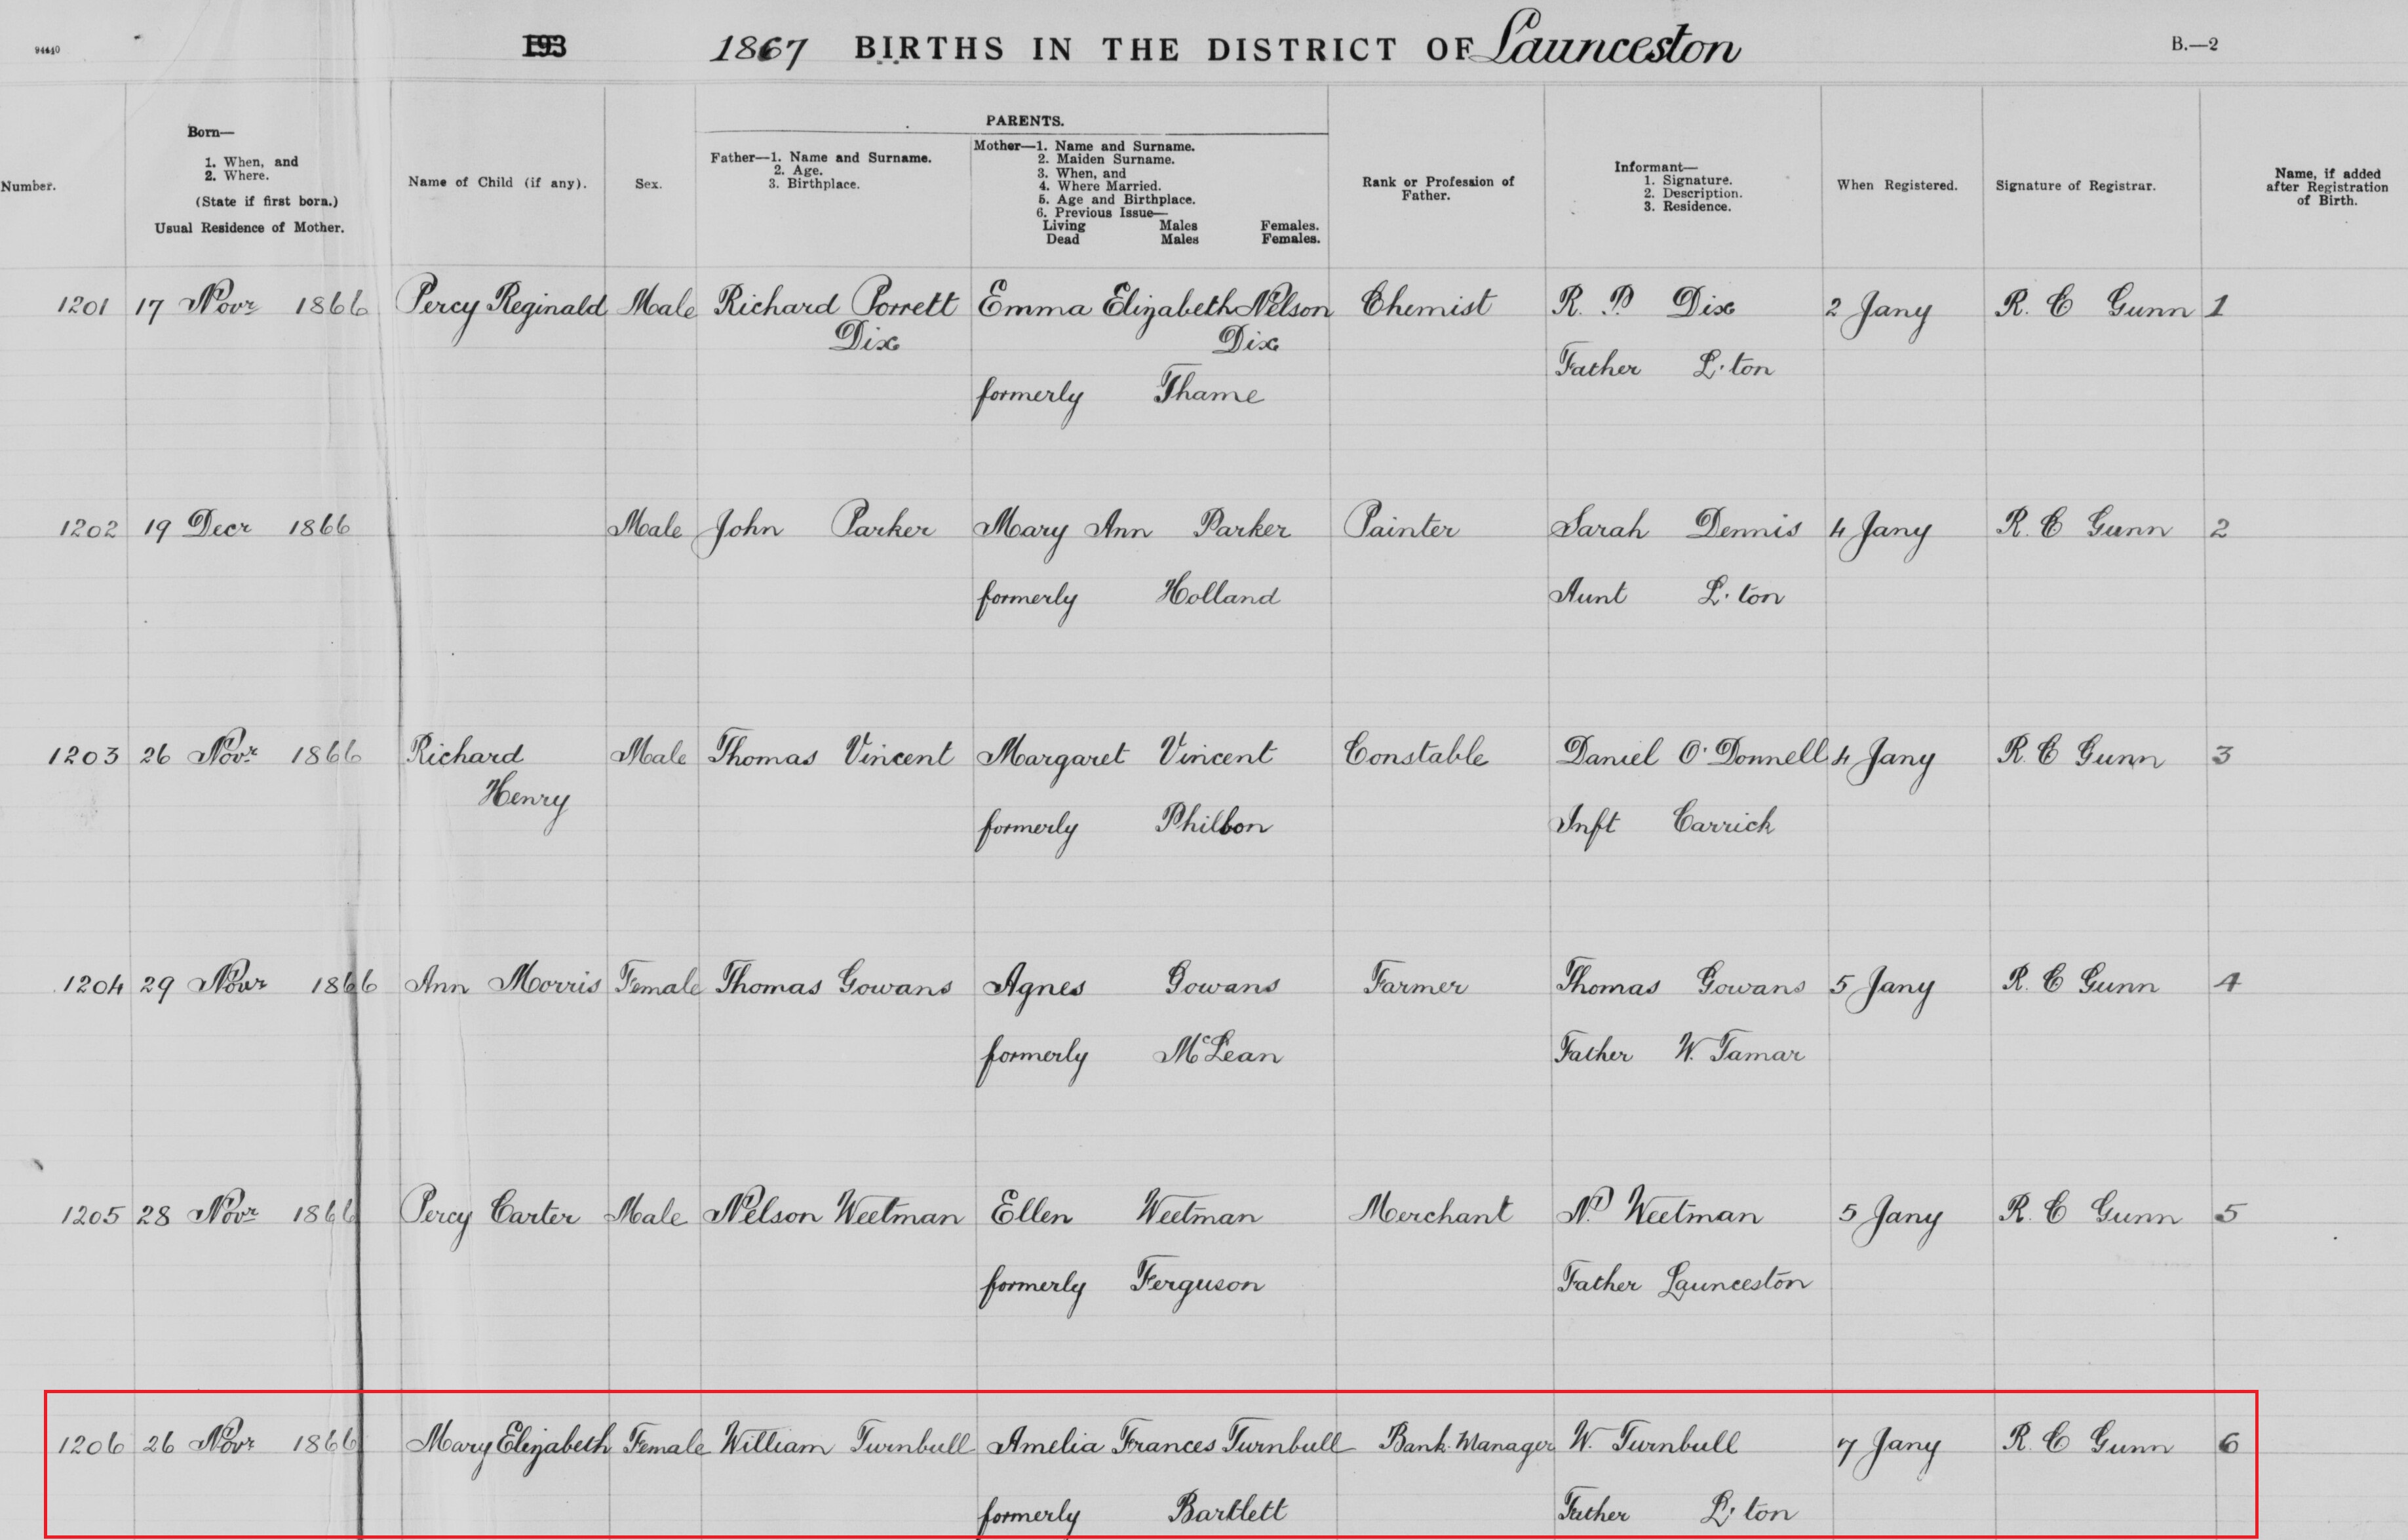 94440
193
1867 BIRTHS IN THE DISTRICT OF Launceston
B.—2
Number.
Born—
1. When, and
2. Where.
(State if first born.)
Usual Residence of Mother.
Name of Child (if any).
Sex.
PARENTS.
Father—1. Name and Surname.
2. Age.
3. Birthplace.
Mother—1. Name and Surname.
2. Maiden Surname.
3. When, and
4. Where Married.
5. Age and Birthplace.
6. Previous Issue—
Living Males Females.
Dead Males Females.
Rank or Profession of
Father.
Informant—
1. Signature.
2. Description.
3. Residence.
When Registered.
Signature of Registrar.
Name, if added
after Registration
of Birth.
1201 17 Novr 1866 Percy Reginald Male Richard Porrett Emma Elizabeth Nelson Chemist R. P. Dix 2 Jany R. C Gunn 1
Dix Dix
Father L. ton
formerly Thame
1202 19 Decr 1866 Male John Parker Mary Ann Parker Painter Sarah Dennis 4 Jany R. C Gunn 2
formerly Holland Aunt L. ton
1203 26 Novr 1866 Richard Male Thomas Vincent Margaret Vincent Constable Daniel O'Donnell 4 Jany R. C Gunn 3
Henry
formerly Philbon Inft Carrick
1204 29 Novr 1866 Ann Morris Female Thomas Gowans Agnes Gowans Farmer Thomas Gowans 5 Jany R. C Gunn 4
formerly McLean Father W. Tamar
1205 28 Novr 1866 Percy Carter Male Nelson Weetman Ellen Weetman Merchant N. Weetman 5 Jany R. C Gunn 5
formerly Ferguson Father Launceston
1206 26 Novr 1866 Mary Elizabeth Female William Turnbull Amelia Frances Turnbull Bank Manager W. Turnbull 7 Jany R. C Gunn 6
formerly Bartlett Father L. ton